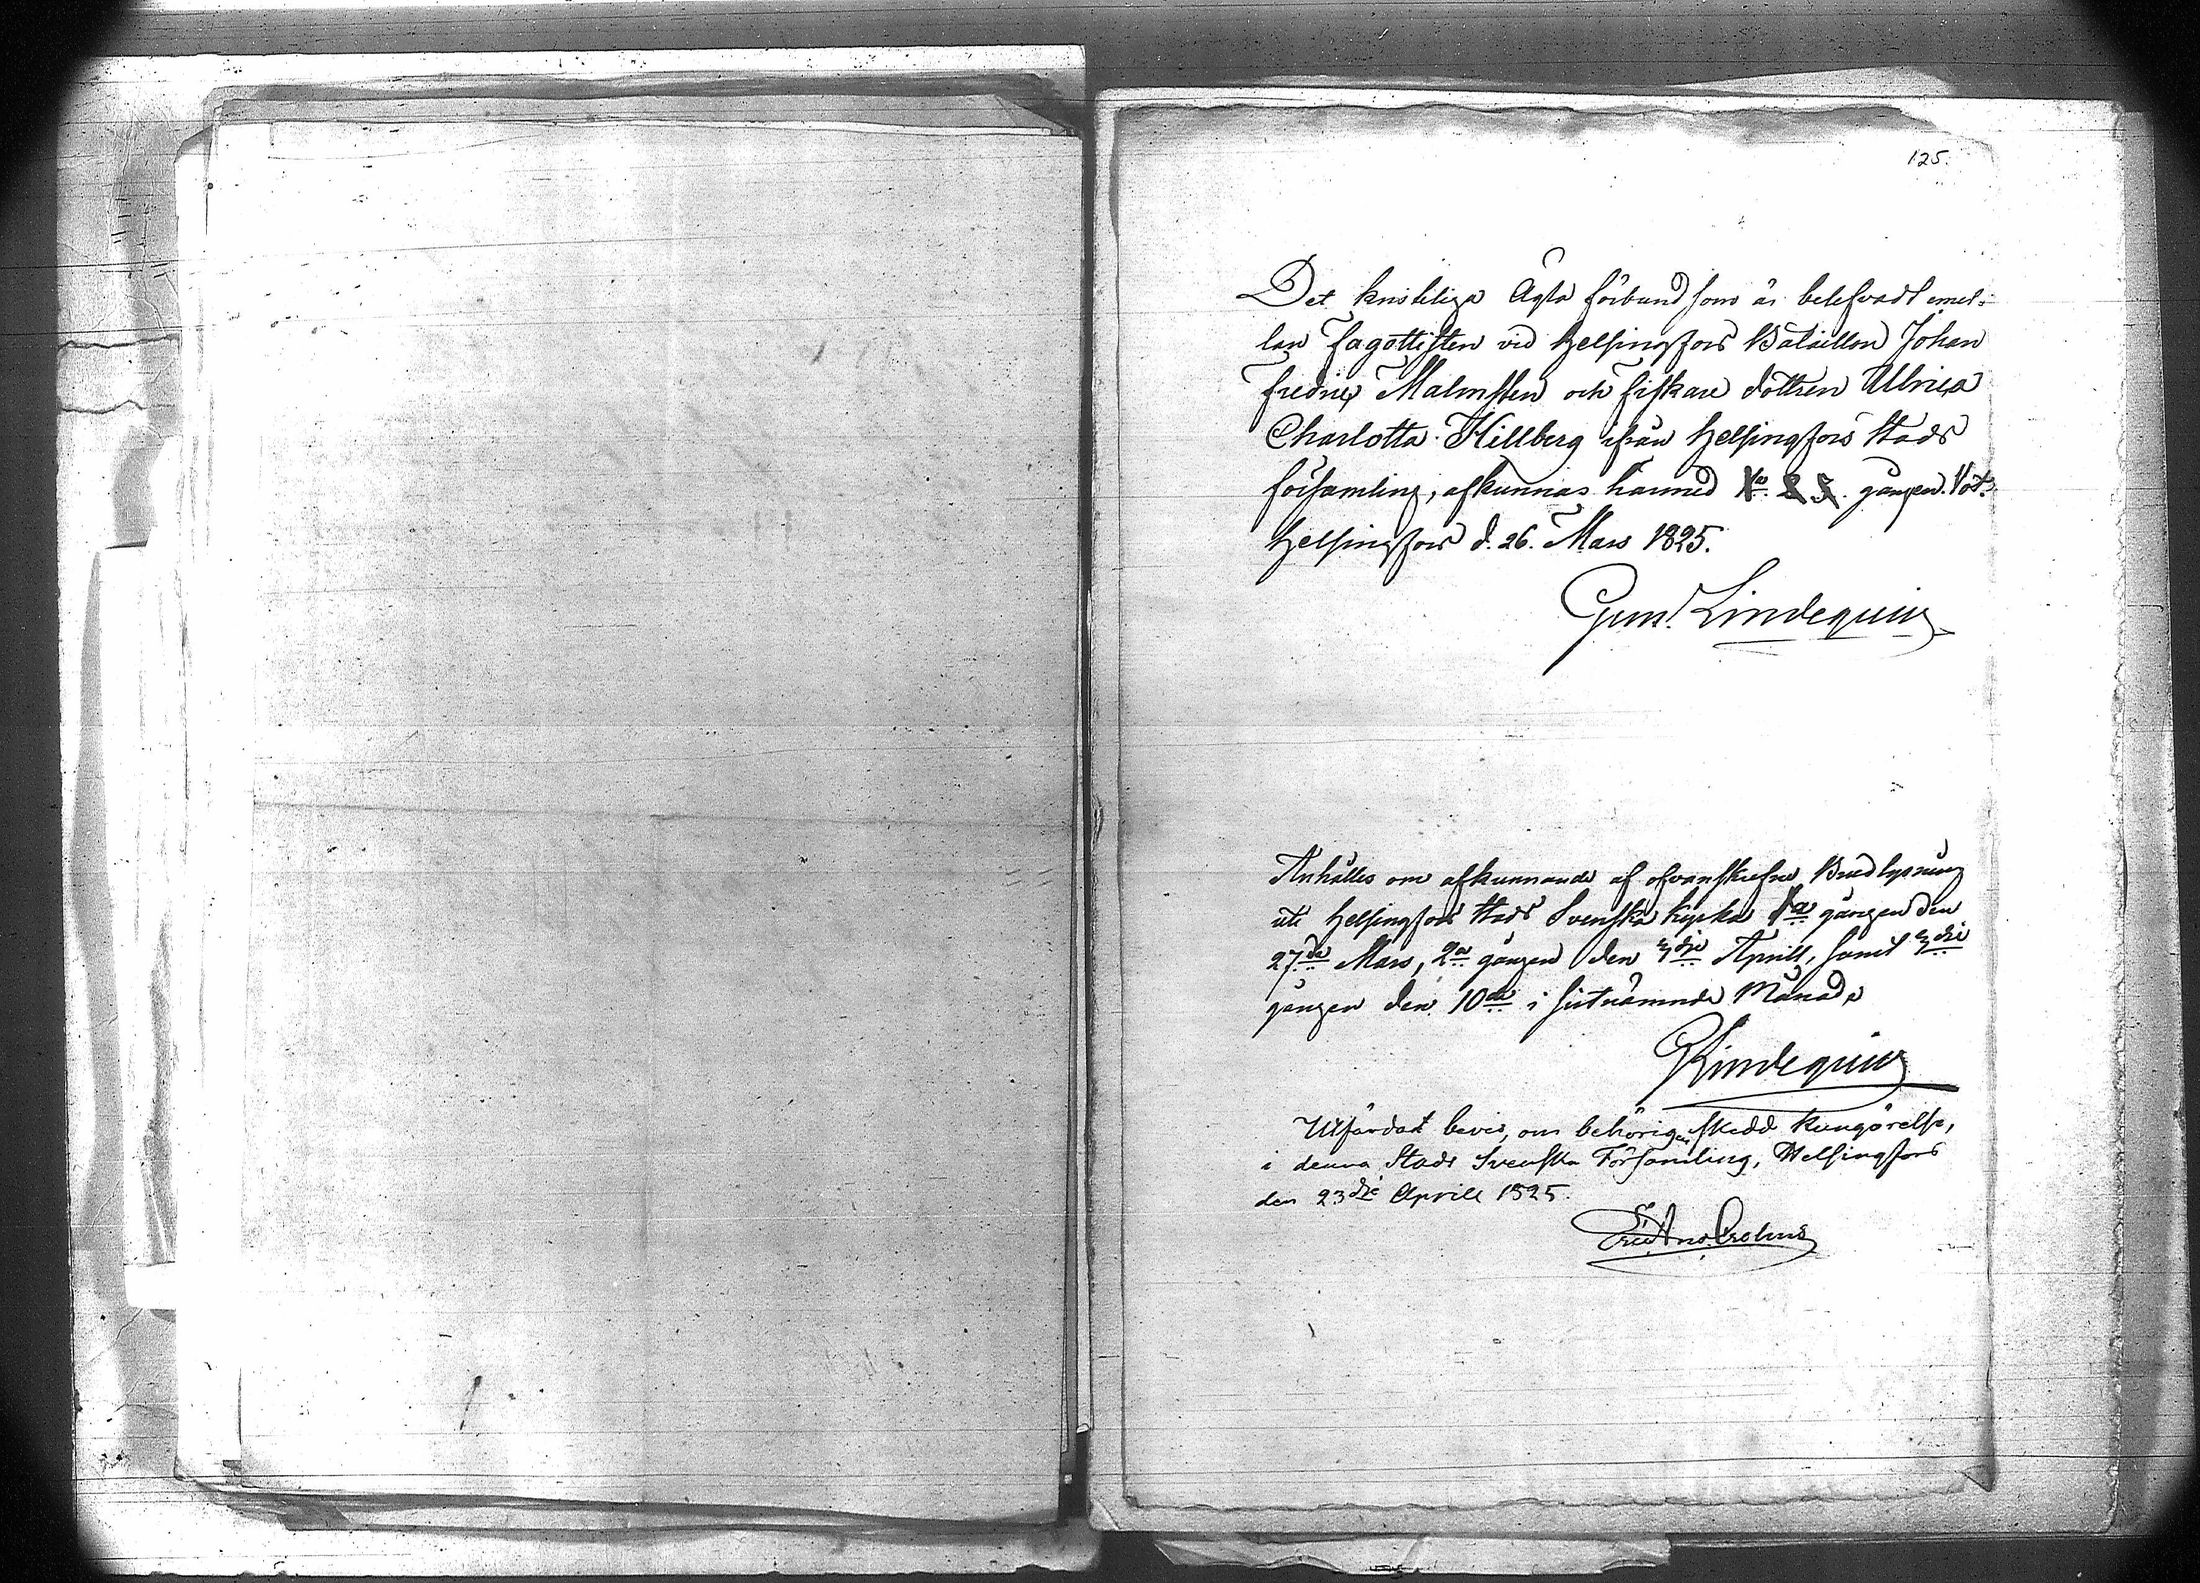 125.
Det kristeliga Ägta förbund som är beslefvadt emel-
lan Fagottisten vid Helsingfors Bataillon Johan
Fredric Malmsten och Fiskare dottren Ulrica
Charlotta Hillberg ifrån Helsingfors Stads
församling, afkunnas härmed 1a 2 3. gången.
Helsingfors d. 26. Mars 1825.
Gust. Lindequist
Anhålles om afkunnande af ofvanskrefne Bud lysning
uti Helsingfors Stads Svenska kyrka 1a gången den
27de Mars, 2a gången den 3dje Aprill, samt 3dje
gången den 10de i sistnämnde Månad.
G Lindequist
Utfärdat bevis, om behörigen skedd kungörelse,
i denna Stads Svenska Församling, Helsingfors
den 23dje Aprill 1825.